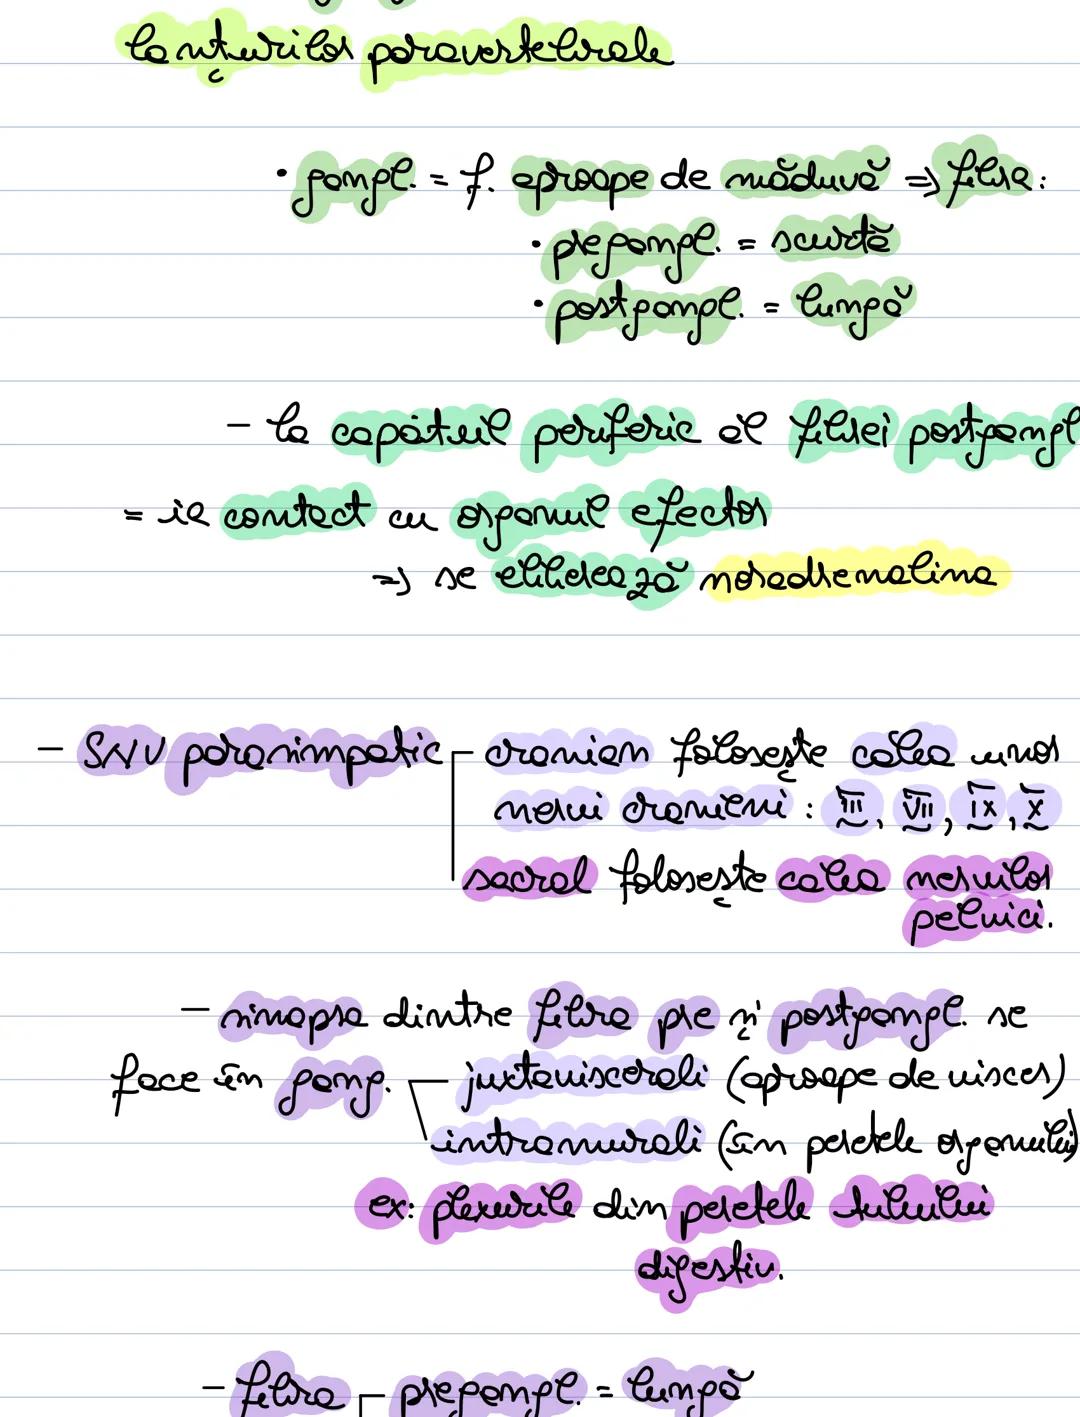 lanțurilor paravertebrale
• gangl. = f. aproape de măduvă => fibra:
• pregangl. = scurtă
• postgangl. = lungă
- la capătul periferic al fibrei postgangl
= ia contact cu organul efector
=> se eliberează noradrenalina
- SNV parasimpatic cranian folosește calea unor
nervi cranieni: III, VII, IX, X
sacral folosește calea nervilor
pelvici.
- sinapsa dintre fibra pre și postgangl. se
face în gang. juxtaviscerali (aproape de viscer)
intramurali (în peretele organului)
ex: plexurile din peretele tubului
digestiv.
- fibra pregangl. = lungă